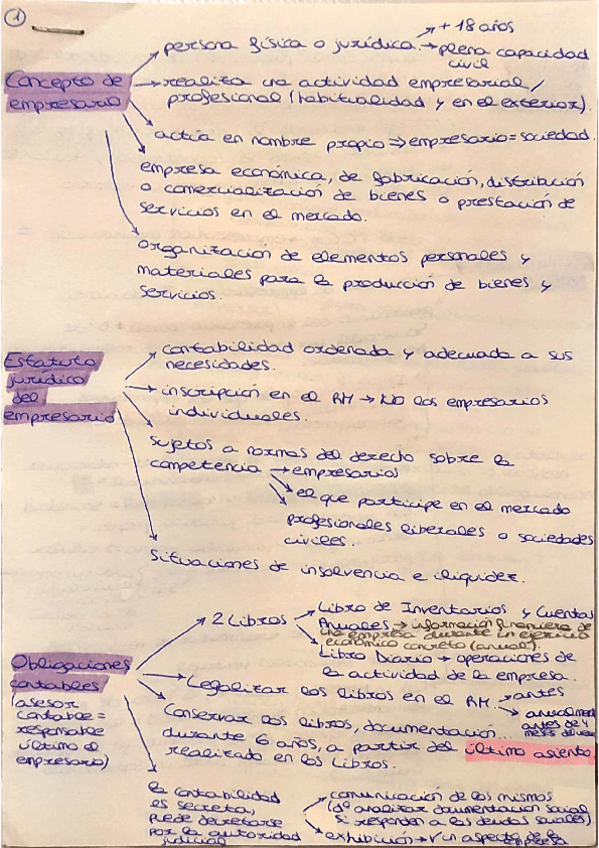 1
+ 18 años
persona física o jurídica. → plena capacidad
civil
Concepto de
empresario
→ realiza una actividad empresarial /
profesional (habitualidad y en el exterior).
actúa en nombre propio ⇒ empresario = sociedad.
empresa económica, de fabricación, distribución
o comercialización de bienes o prestación de
servicios en el mercado.
organización de elementos personales y
materiales para la producción de bienes y
servicios.
Estatuto
jurídico
del
empresario
contabilidad ordenada y adecuada a sus
necesidades.
→ inscripción en el RM → NO los empresarios
individuales.
sujetos a normas del derecho sobre la
competencia → empresarios
el que participe en el mercado
profesionales liberales o sociedades
civiles.
situaciones de insolvencia e iliquidez.
Obligaciones
contables
(asesor
contable =
responsable
último el
empresario)
2 Libros
Libro de Inventarios y Cuentas
Anuales → información financiera de
una empresa durante un ejercicio
económico concreto (anual).
Libro Diario → operaciones de
la actividad de la empresa.
Legalizar los libros en el RM. → antes
anualmente
antes de 4
meses
Conservar los libros, documentación...
durante 6 años, a partir del último asiento
realizado en los Libros.
la contabilidad
es secreta,
puede decretarse
por la autoridad
judicial
comunicación de los mismos
(dº analizar documentación social
si responden a las deudas sociales)
exhibición → un aspecto de la
empresa